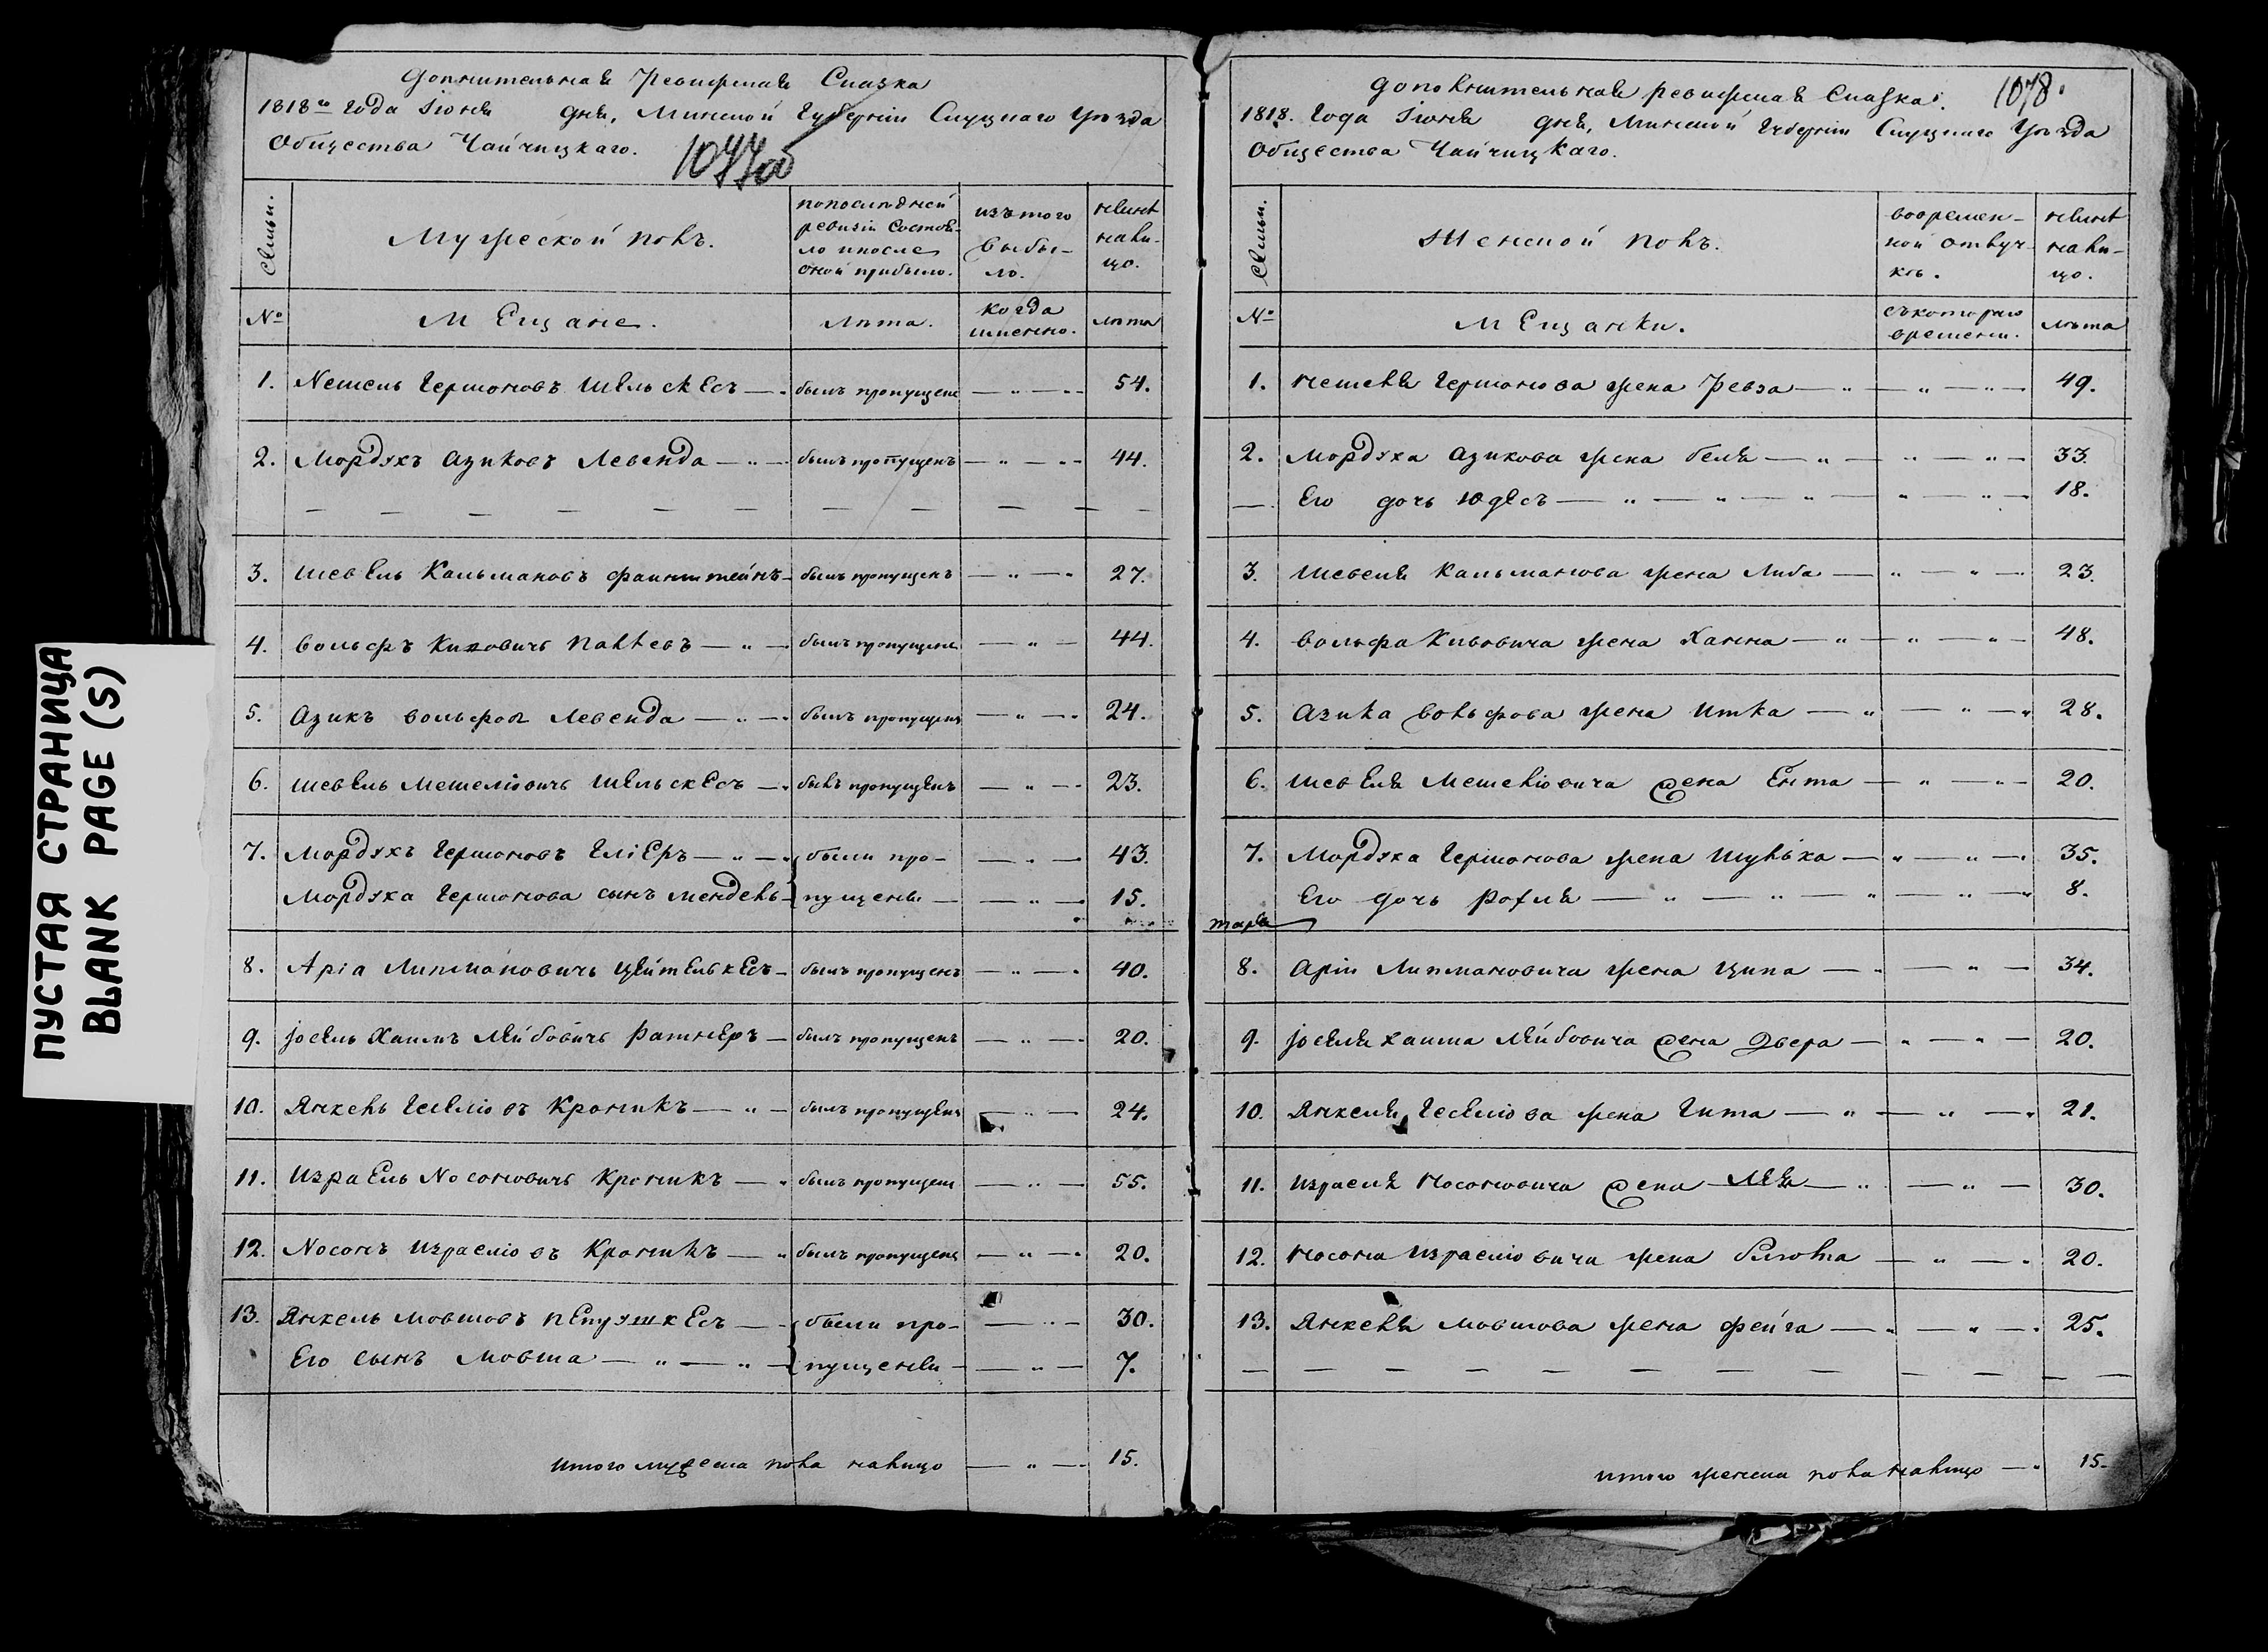 ПУСТАЯ СТРАНИЦА
BLANK PAGE (S)
Дополнительная Ревизская Сказка
1818го года Іюня дня, Минской Губерніи Слуцкаго Уѣзда
Общества Чайчицкаго.
1077об
Семьи.
Мужеской полъ.
попоследней ревизіи Состояло ипосле оной прибыло.
изътого выбыло.
ныне налицо.
№
МЕщане.
лѣта.
когда именно.
лѣта
1. Nешель Гершоновъ ШельскЕсъ — былъ пропущенъ — " — 54.
2. Мордухъ Азиковъ Левенда — " — былъ пропущенъ — " — 44.
3. ШевЕль Кальмановъ Файнштейнъ — былъ пропущенъ — " — 27.
4. Вольфъ Кивовичъ — " — былъ пропущенъ — " — 44.
5. Азикъ Вольфов Левенда — " — былъ пропущенъ — " — 24.
6. ШевЕль Мешеліовичъ ШельскЕсъ — былъ пропущенъ — " — 23.
7. Мордухъ Гершоновъ ГліЕръ — " — были про- — " — 43.
Мордуха Гершонова сынъ Мендель — пущены — " — 15.
8. Аріа Липмановичъ ЦейтельвкЕсъ — былъ пропущенъ — " — 40.
9. Јосель Хаимъ Лейбовичъ Ратнеръ — былъ пропущенъ — " — 20.
10. Янкель Іеселіовъ Кроникъ — " — былъ пропущенъ — " — 24.
11. ИзраЕль Nосоновичъ Кроникъ — " былъ пропущенъ — " — 55.
12. Nосонъ Израеліовъ Кроникъ — " былъ пропущенъ — " — 20.
13. Янкель Мовшовъ пЕпушкЕсъ — были про- — " — 30.
Его сынъ Мовша — " — " — пущены — " — 7.
итого мужеска пола налицо — " — 15.
1078.
Дополнительная ревизская Сказка.
1818. Года Іюня дня, Минской Губерніи Слуцкаго Уѣзда
Общества Чайчицкаго.
Семьи.
Женской полъ.
вовременной отлучке.
ныне налицо.
№
МЕщанки.
съкотораго времени.
лѣта
1. Нешеля Гершонова жена Ревза — " — " — " — 49.
2. Мордуха Азикова жена Беля — " — " — " — 33.
— Его дочь Юдесъ — " — " — " — " — " — 18.
3. Шевеля Кальманова жена Либа — " — " — 23.
4. Вольфа Кивовича жена Ханна — " — " — " — 48.
5. Азика Вольфова жена Итка — " — " — " 28.
6. ШевЕля Мешеліовича жена Ента — " — " — 20.
7. Мордуха Гершонова жена Шулька — " — " — 35.
Его дочь Рохля — " — " — " — " — " 8.
8. Аріи Липмановича жена Ципа — " — " — 34.
9. Јоселя Хаима Лейбовича жена Двера — " — " — 20.
10. Янкеля Іеселіова жена Гита — " — " — " 21.
11. Израеля Носоновича жена Лея — " — " — 30.
12. Носона Израеліовича жена Блюма — " — " 20.
13. Янкеля Мовшова жена Фейга — " — " — 25.
итого женска пола налицо — " 15.